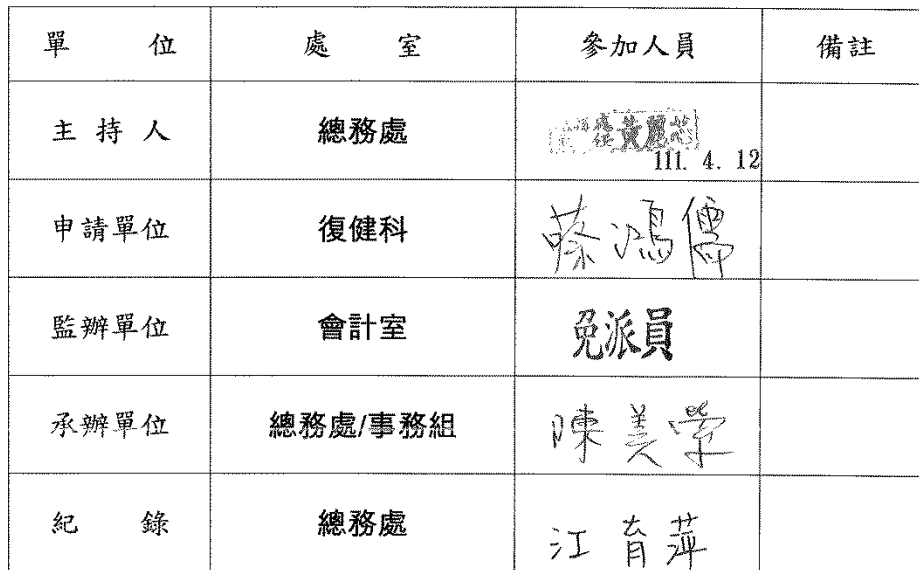 單 位 處 室 參加人員 備註
主 持 人 總務處 黃麗芯
111. 4. 12
申請單位 復健科 蔡鴻儒
監辦單位 會計室 免派員
承辦單位 總務處/事務組 陳美
紀 錄 總務處 江育萍